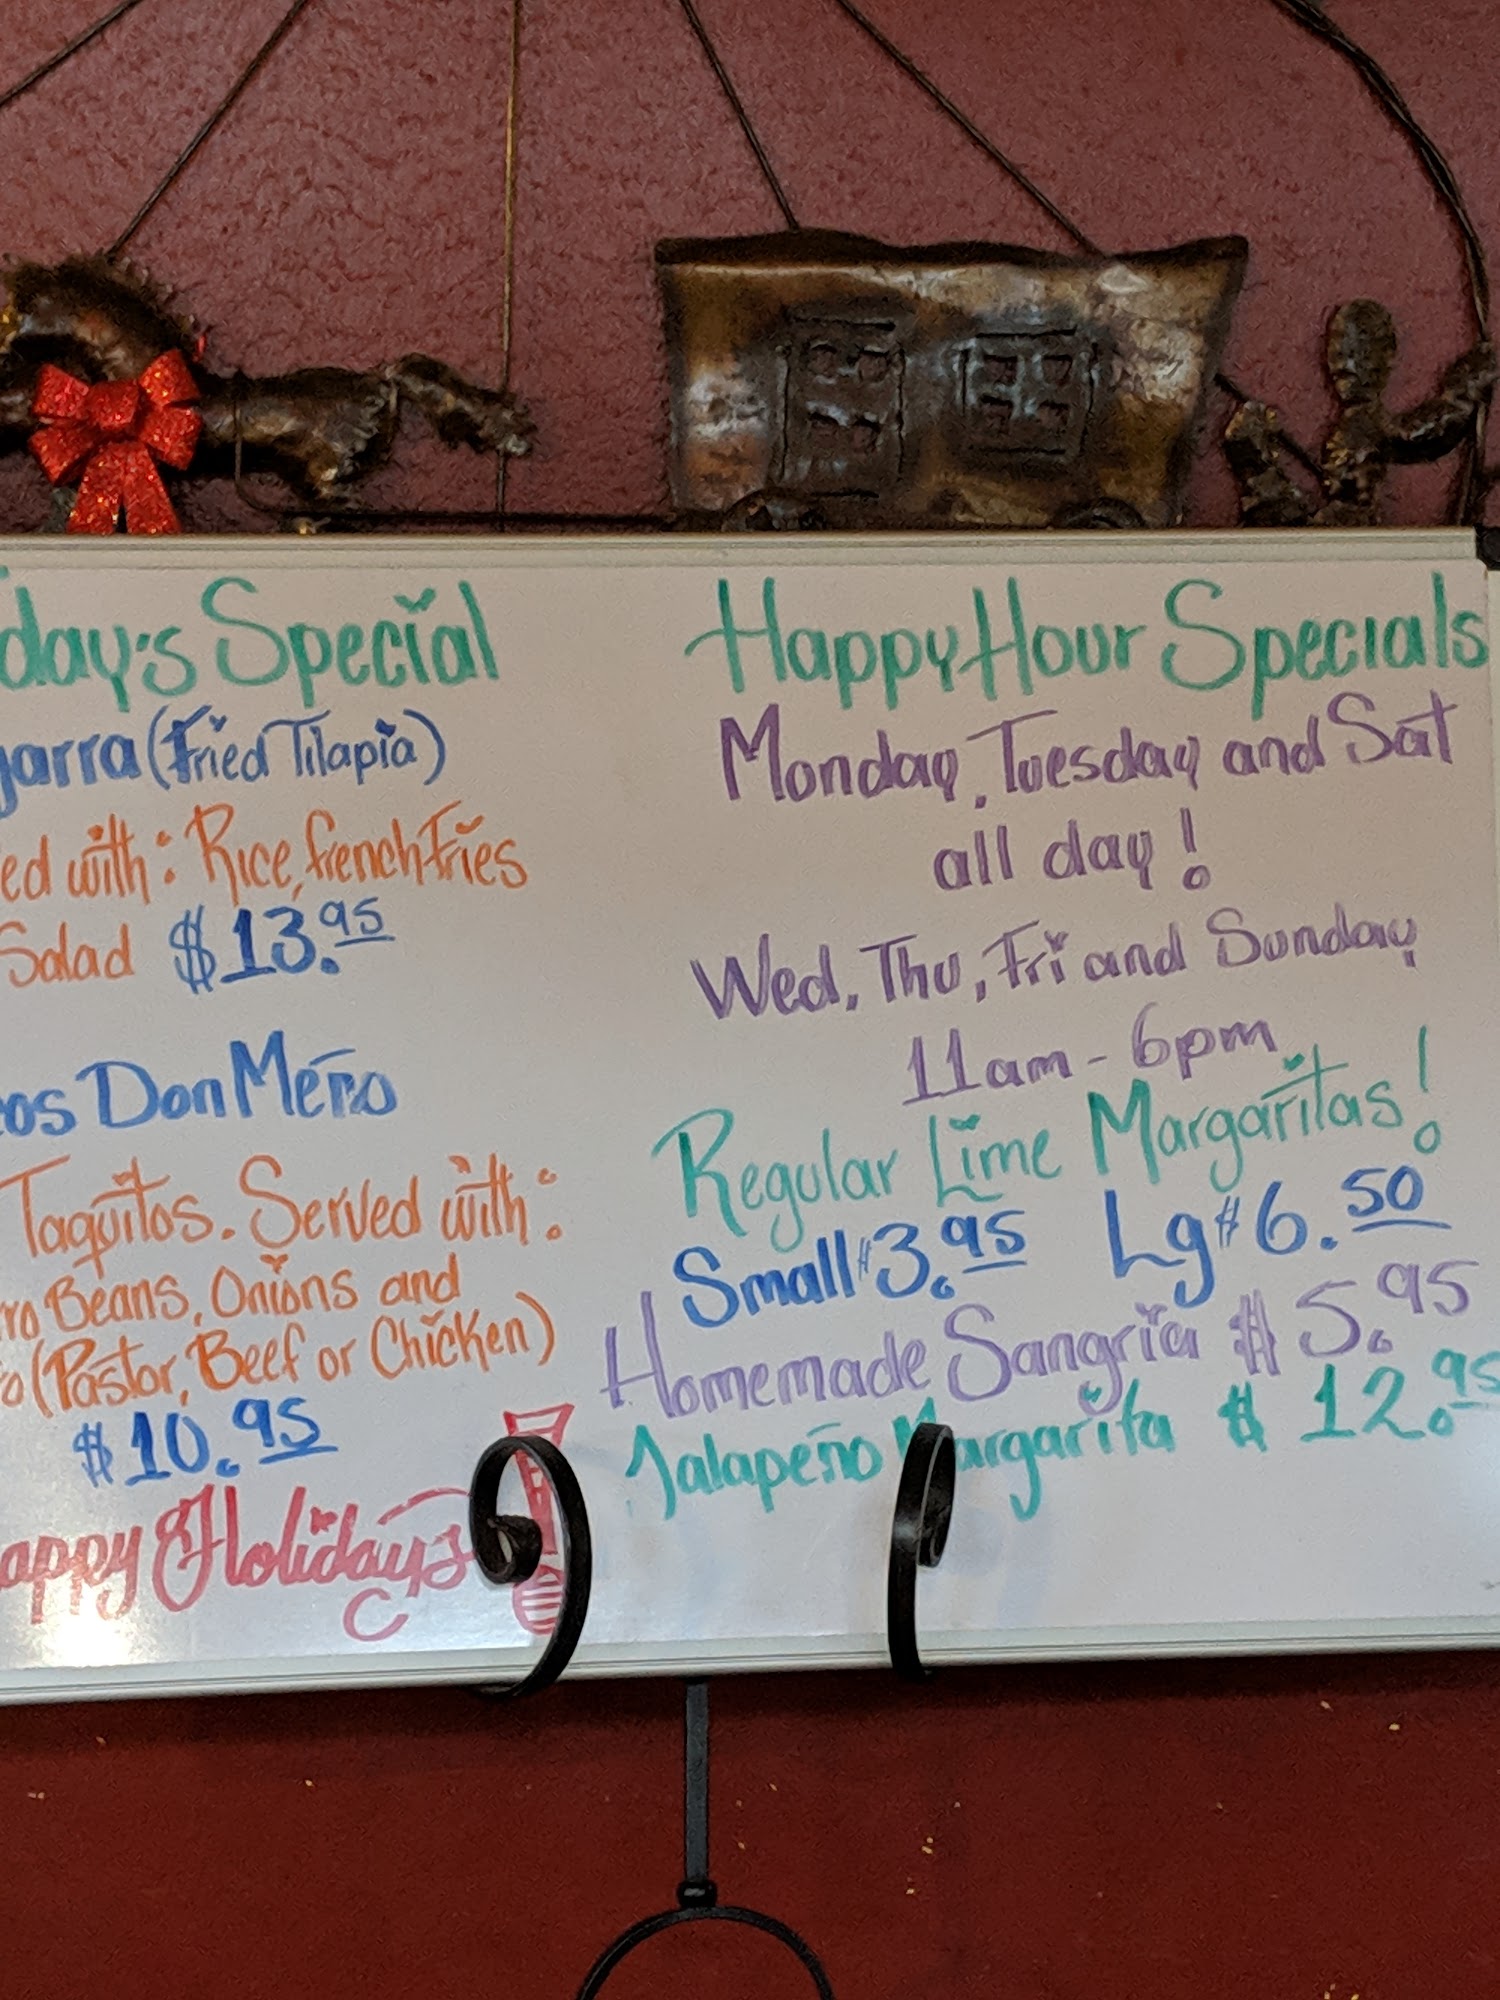 day's Special
jarra (Fried Tilapia)
ed with: Rice, french Fries
Salad $13.95
os Don Meño
Taquitos. Served with:
ro Beans, Onions and
o (Pastor, Beef or Chicken)
$10.95
appy Holidays
Happy Hour Specials
Monday, Tuesday and Sat
all day!
Wed, Thu, Fri and Sunday
11am - 6pm
Regular Lime Margaritas!
Small $3.95 Lg $6.50
Homemade Sangria $5.95
Jalapeño Margarita $12.95